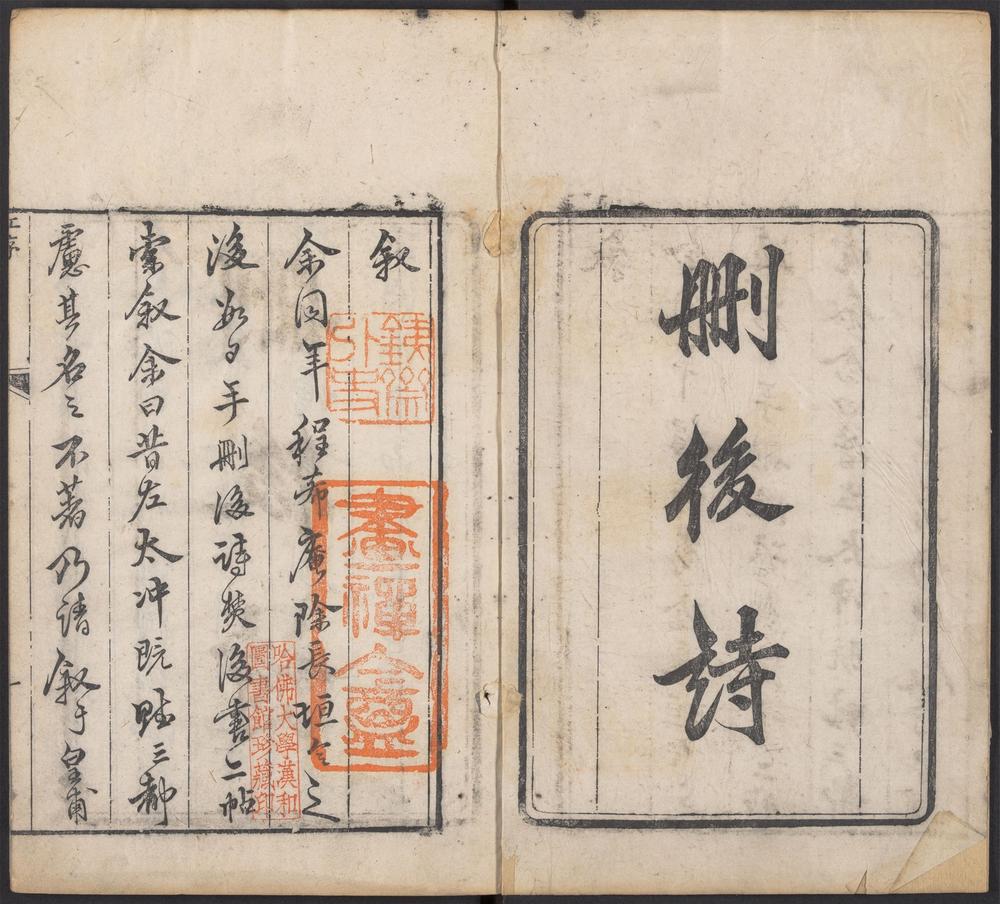 刪後詩
叙
余同年程希庵除長垣令之
後數日手刪後詩焚後書二帖
索叙余曰昔左太冲既賦三都
慮其名之不著乃請叙于皇甫
哈佛大學漢和
圖書館珍藏印